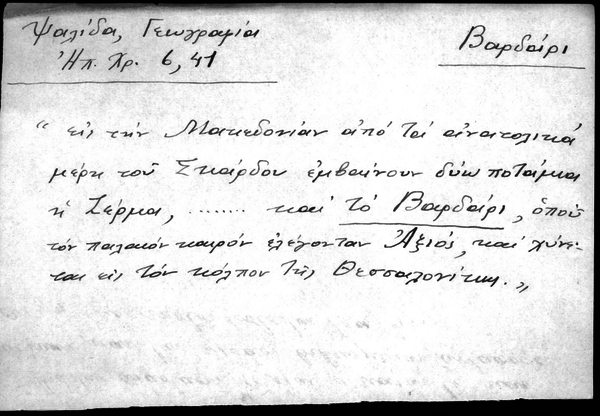 Ψαλίδα, Γεωγραφία
Ἠπ. Χρ. 6, 41
Βαρδάρι
“ εἰς τὴν Μακεδονίαν ἀπὸ τὰ ἀνατολικά
μέρη τοῦ Σκάρδου ἐμβαίνουν δύω ποτάμια
ἡ Σέρμα, ........ καί τὸ Βαρδάρι, ὁποῦ
τὸν παλαιὸν καιρὸν ἐλέγονταν Ἀξιός, καὶ χύνε-
ται εἰς τὸν κόλπον τῆς Θεσσαλονίκης. „